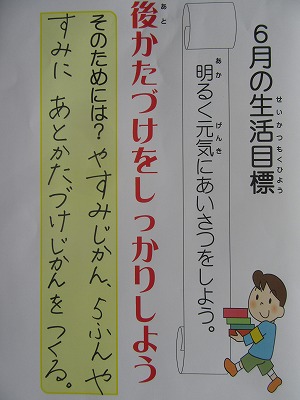 6月の生活目標
明るく元気にあいさつをしよう。
後かたづけをしっかりしよう
そのためには？やすみじかん、5ふんや
すみに あとかたづけじかんを つくる。